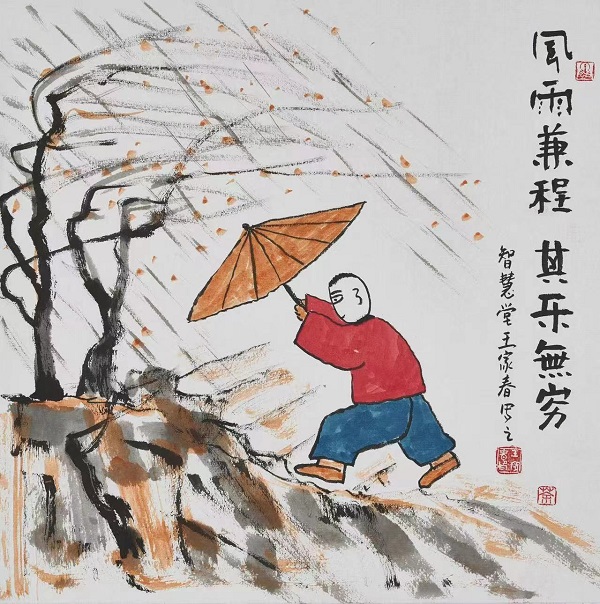 風雨兼程 其乐無穷
智慧堂王家春写之